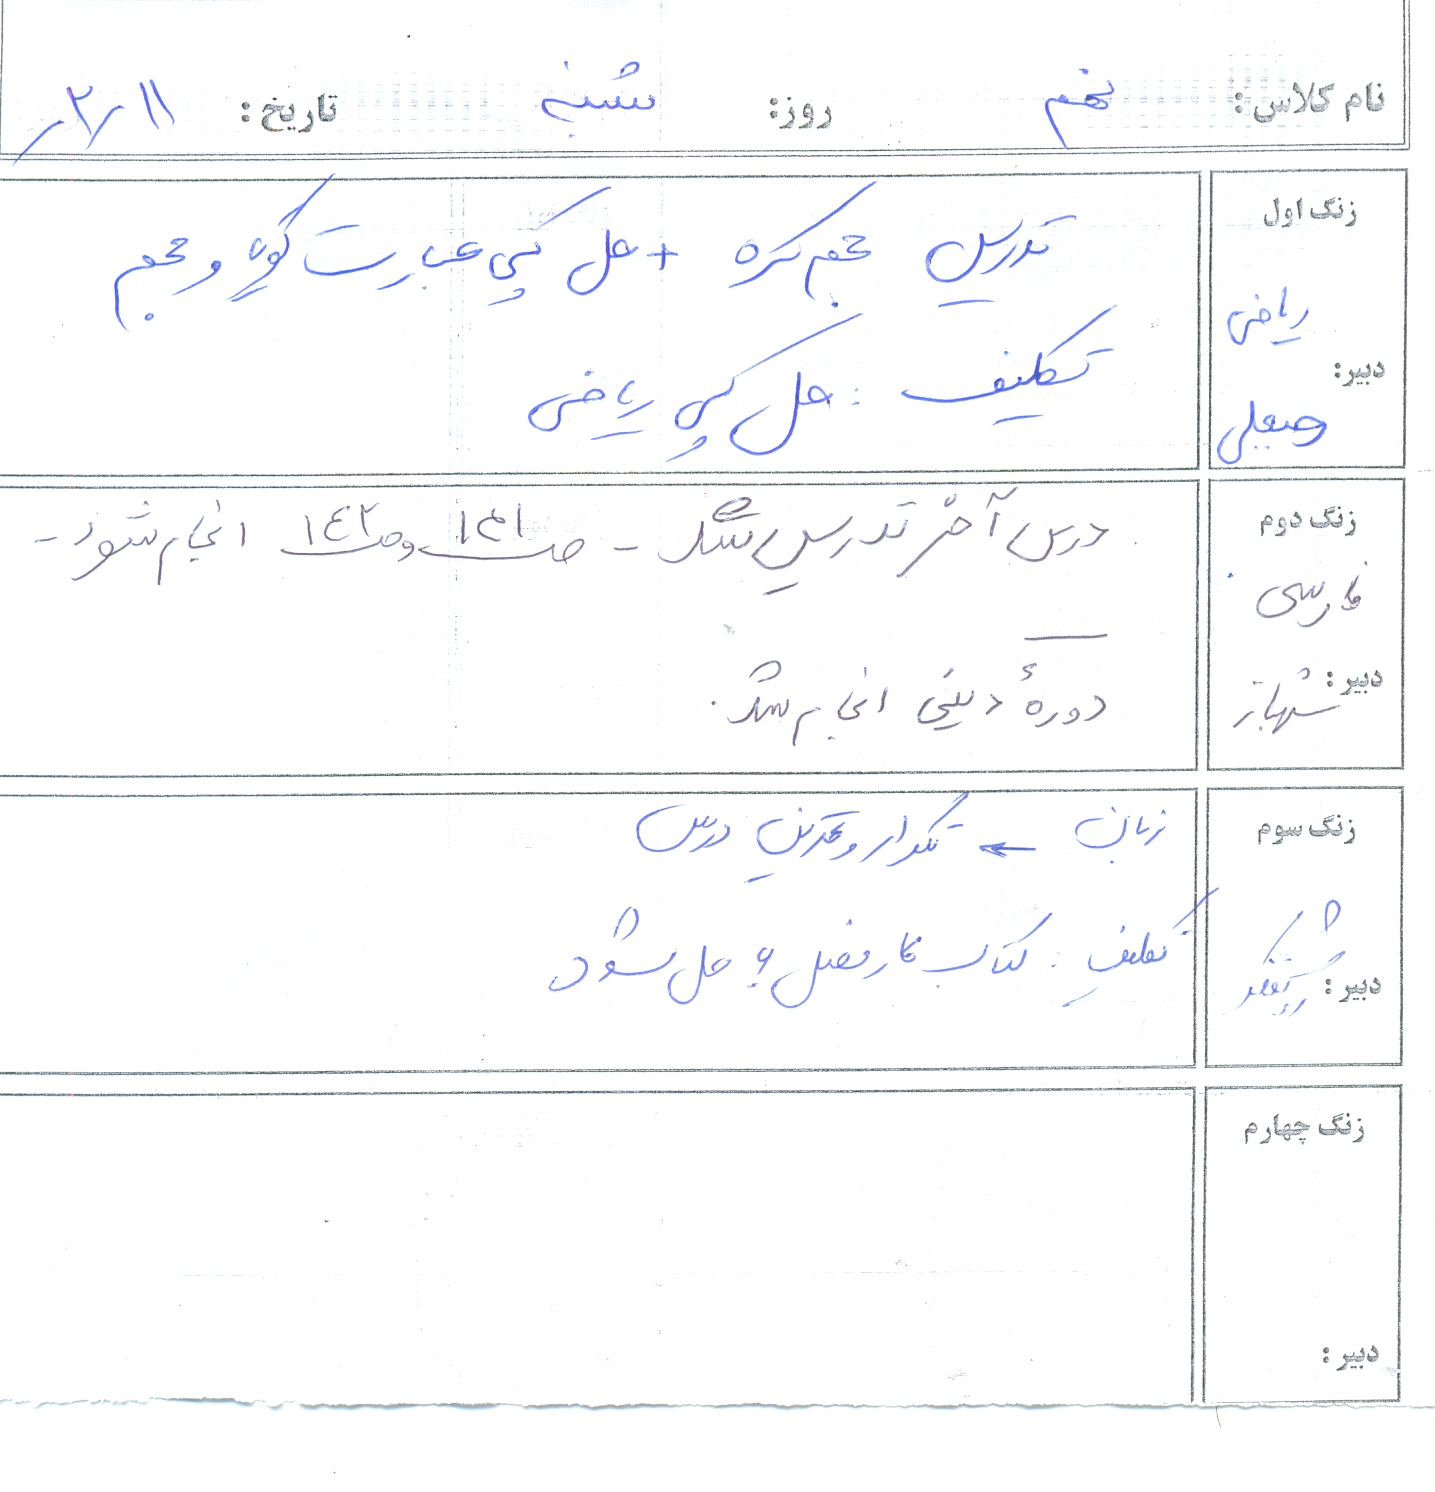 نام کلاس: نهم روز: شنبه تاریخ: ۲/۱۱
زنگ اول
ریاضی
دبیر:
تدریس حجم کره + حل کپی عبارت گویا و حجم
تکلیف: حل کپی ریاضی
زنگ دوم
فارسی
دبیر: شهباز
درس آخر تدریس شد - ص ۱۴۱ و ص ۱۴۲ انجام شود -
دورهٔ دینی انجام شد.
زنگ سوم
دبیر:
زبان ← تکرار و تمرین درس
تکلیف: کتاب کار فصل ۶ حل شود
زنگ چهارم
دبیر: